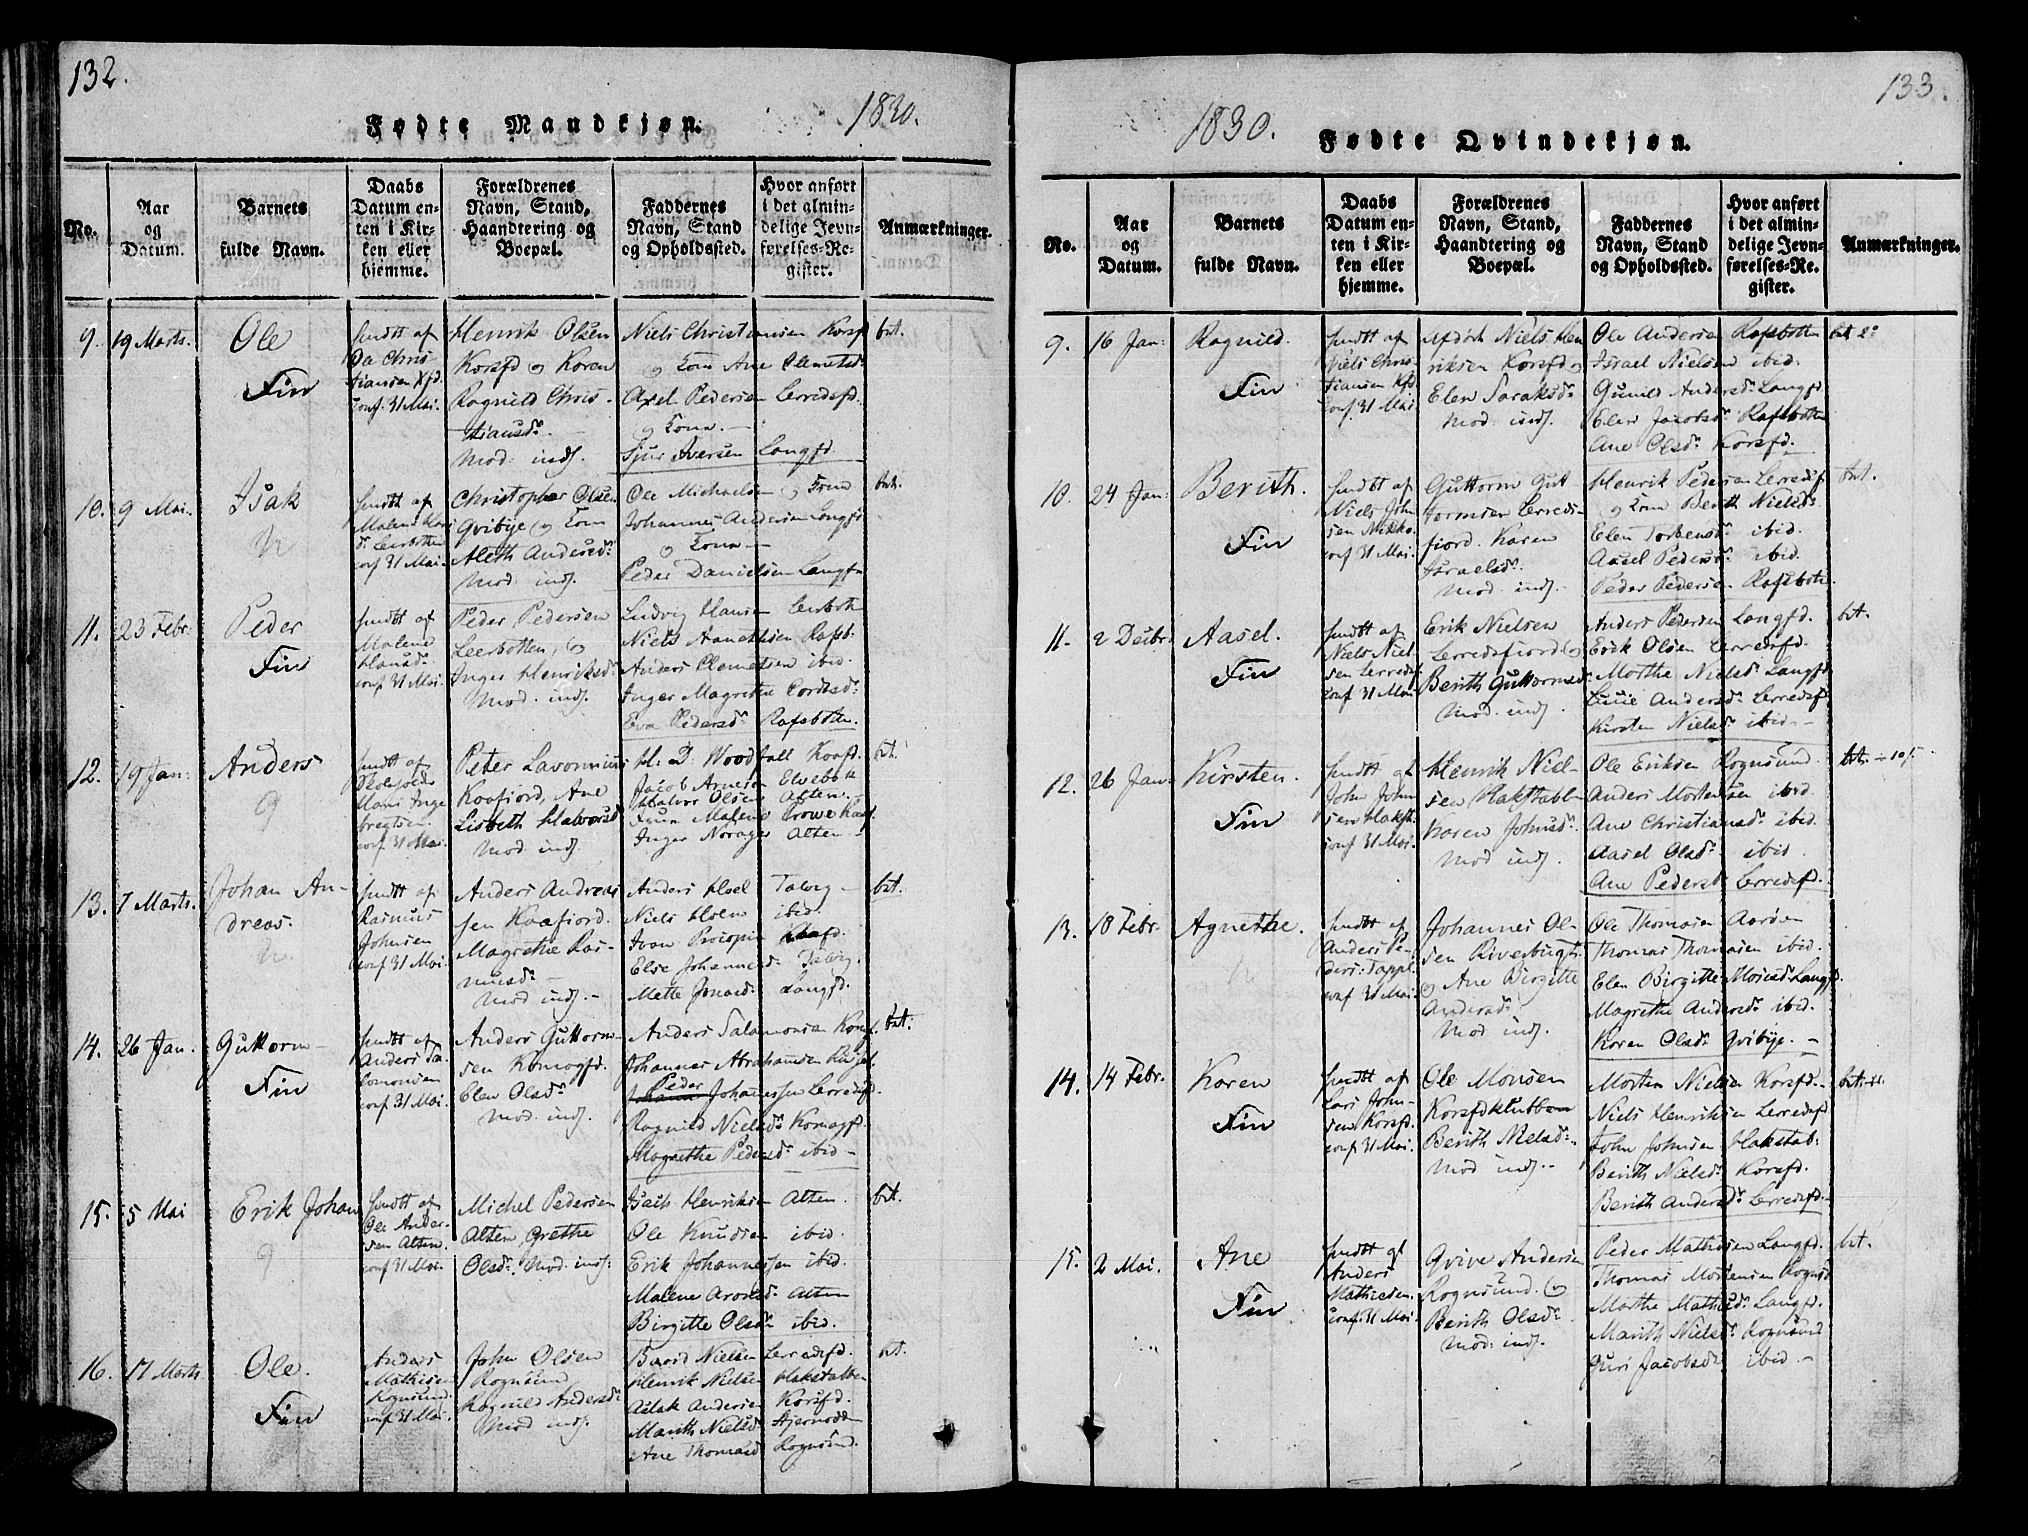 132.
Fødte Mandkjøn. 1830.
No.
Aar og Datum.
Barnets fulde Navn.
Daabs Datum enten i Kirken eller hjemme.
Forældrenes Navn, Stand, Haandtering og Boepæl.
Faddernes Navn, Stand og Opholdssted.
Hvor anført i det almindelige Jevnførelses-Register.
Anmærkninger.
9. 19 Marts. Ole
Fin
hmdt af
Da Chris-
tiansen Kfd.
conf. 31 Mai.
Henrik Olsen
Korsfd og Koren
Ragnild Chris-
tiansdr.
Mod. indf.
Niels Christiansen Korsf
og Kona Ane Clemetsd.
Axel Pedersen Lerredsfd.
og Kona.
Sjur Iversen Langfd
bet.
10. 9 Mai. Isak
hmdt af
Malene
Leerbotten
conf 31 Mai.
Christopher Olsen
Qvibye og Kona
Aleth Andersd.
Mod. indf.
Ole Michaelsen og Kona
Johannes Andersen Langfd
og Kona
Peder Danielsen Langf
bet.
11. 23 Febr. Peder
Fin
hmdt af
Malene
Hansd.
conf. 31 Mai.
Peder Pedersen
Leerbotten, og
Inger Henriksd.
Mod. indf.
Ludvig Hansen Lerbotn
Niels Anethsen Rafsb.
Anders Clemetsen ibid.
Inger Magrethe Cordtsd.
Eva Pedersd. Rafsbotn.
12. 19 Jan: Anders
hmdt af
Skoleholder
Hans Inge-
bregtsen
conf 31 Mai
Peter Lavonnius
Kaafiord, Ane
Lisbeth Halvorsd
Mod. indf.
H. D. Woodfall Kaafd.
Jacob Arnesen Elvebak
Halvor Olsen Alten.
Malene Crowe Kaaf.
Inger Norager Alten
bet.
13. 7 Marts. Johan An-
dreas.
hmdt af
Rasmus
Johnsen
conf 31 Mai.
Anders Andreas
sen Kaafiord.
Magrethe Ras-
musd.
Mod indf.
Anders Hoel Talvig
Niels Hoem ibid.
Ivan Procopin Kaafd.
Else Johannesd. Talvig.
Mette Jonasd. Langfd.
bet.
14. 26 Jan. Guttorm
Fin
hmdt af
Anders Sa-
lomonsen
conf. 31 Mai.
Anders Guttorm-
sen Komagfd.
Elen Olsdr.
Mod. indf.
Anders Salamonsen Komf.
Johannes Abrahamsen
Peder
Johannessen Lerredsfd.
Ragnild Nielsd. Komagfd.
Magrethe Pedersd. ibid
bet.
15. 5 Mai Erik Johan
hmdt af
Ole Ander-
sen Alten.
conf 31 Mai.
Michel Pedersen
Alten, Grethe
Olsdr. Mod. indf.
Isach Henriksen Alten.
Ole Knudsen ibid.
Erik Johannessen ibid.
Malene Aronsd. Alten
Birgitte Olsdr. ibid.
bet.
16. 17 Marts Ole.
Fin
Anders
Mathisen
Rognsund.
conf 31 Mai.
John Olsen
Rognsund
Ragnild Andersd.
Mod indf.
Baard Nielsen Lerredsfd.
Henrik Nielsen Hakstabben
Aslak Andersen Korsfd.
Marith Nielsd Stjernodd
Ane Thomasd Rognsund.
bet.
133.
1830. Fødte Qvindekjøn.
No.
Aar og Datum.
Barnets fulde Navn.
Daabs Datum enten i Kirken eller hjemme.
Forældrenes Navn, Stand, Haandtering og Boepæl.
Faddernes Navn, Stand og Opholdssted.
Hvor anført i det almindelige Jevnførelses-Register.
Anmærkninger.
9. 16 Jan: Ragnild.
Fin
hmdt af
Niels Chris-
tiansen Kfd.
conf. 31 Mai
Afdøde Niels Hen
riksen Korsfd og
Elen Saraksd.
Mod. indf.
Ole Andersen Rafsbotten
Israel Nielsen ibid.
Gunild Andersd. Langfd.
Elen Jacobsd. Rafsbotten
Ane Olsd. Korsfd.
bet
10. 24 Jan: Berith.
Fin
hmdt af
Niels John
sen
conf. 31 Mai.
Guttorm Gut
tormsen Lerreds-
fiord. Karen
Israelsd.
Mod. indf.
Henrik Pedersen Lerredsf.
og Kona Berith Nielsd.
Elen Torbensd. ibid.
Aasel Pedersd. ibid.
Peder Pedersen Rafsbotn.
bet.
11. 2 Decbr. Aasel.
Fin
hmdt af
Niels Niel
sen Lerredsf.
conf 31 Mai.
Erik Nielsen
Lerredsfiord og
Berith Guttormsd.
Mod. indf.
Anders Pedersen Langfd.
Erik Olsen Lerredsfd.
Morthe Nielsd. Langfd
Andersd. Lerredsfd
Kirsten Nielsd. ibid.
bet.
12. 26 Jan: Kirsten.
Fin
hmdt af
John John
sen Hakst.
conf. 31 Mai.
Henrik Niel-
sen Hakstabb
Karen Johnsd.
Mod indf.
Ole Eriksen Rognsund.
Anders Mortensen ibid.
Ane Christiansd. ibid
Aasel Olsd. ibid
Ane Pedersd. Lerredsfd.
bet.
13. 18 Febr. Agnethe.
hmdt af
Anders Pe-
ders. Tappl.
conf. 31 Mai.
Johannes Ol-
sen
og Ane Birgitte
Andersd.
Mod indf.
Ole Thomasen Aarøen
Thomas Thomasen ibid.
Elen Birgitte Langfd.
Magrethe Andersd. ibid.
Karen Olsd. Qvibye.
14. 14 Febr. Karen
Fin
hmdt af
Lars John-
sen Korsfd.
conf. 31 Mai.
Ole Monsen
Korsfdklubben
Berith Nielsd.
Mod indf.
Morten Nielsen Korsfd.
Niels Henriksen Lerredsfd
John Johnsen Hakstab:
Berith Nielsd. Korsfd.
Berith Andersd. Lerredsfd.
bet.
15. 2 Mai. Ane
Fin
hmdt af
Anders
Mathisen.
conf. 31 Mai
Qvive Andersen
Rognsund. og
Berith Olsd.
Mod. indf.
Peder Mathisen Langfd.
Thomas Mortensen Rognsd
Morthe Mathisd. Langfd.
Marith Nielsd. Rognsund
Guri Jacobsd. ibid
bet.